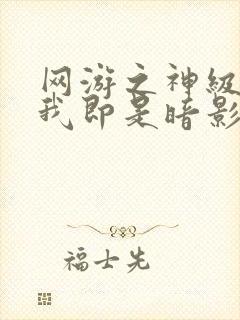 网游之神级
我即是暗影
福士先